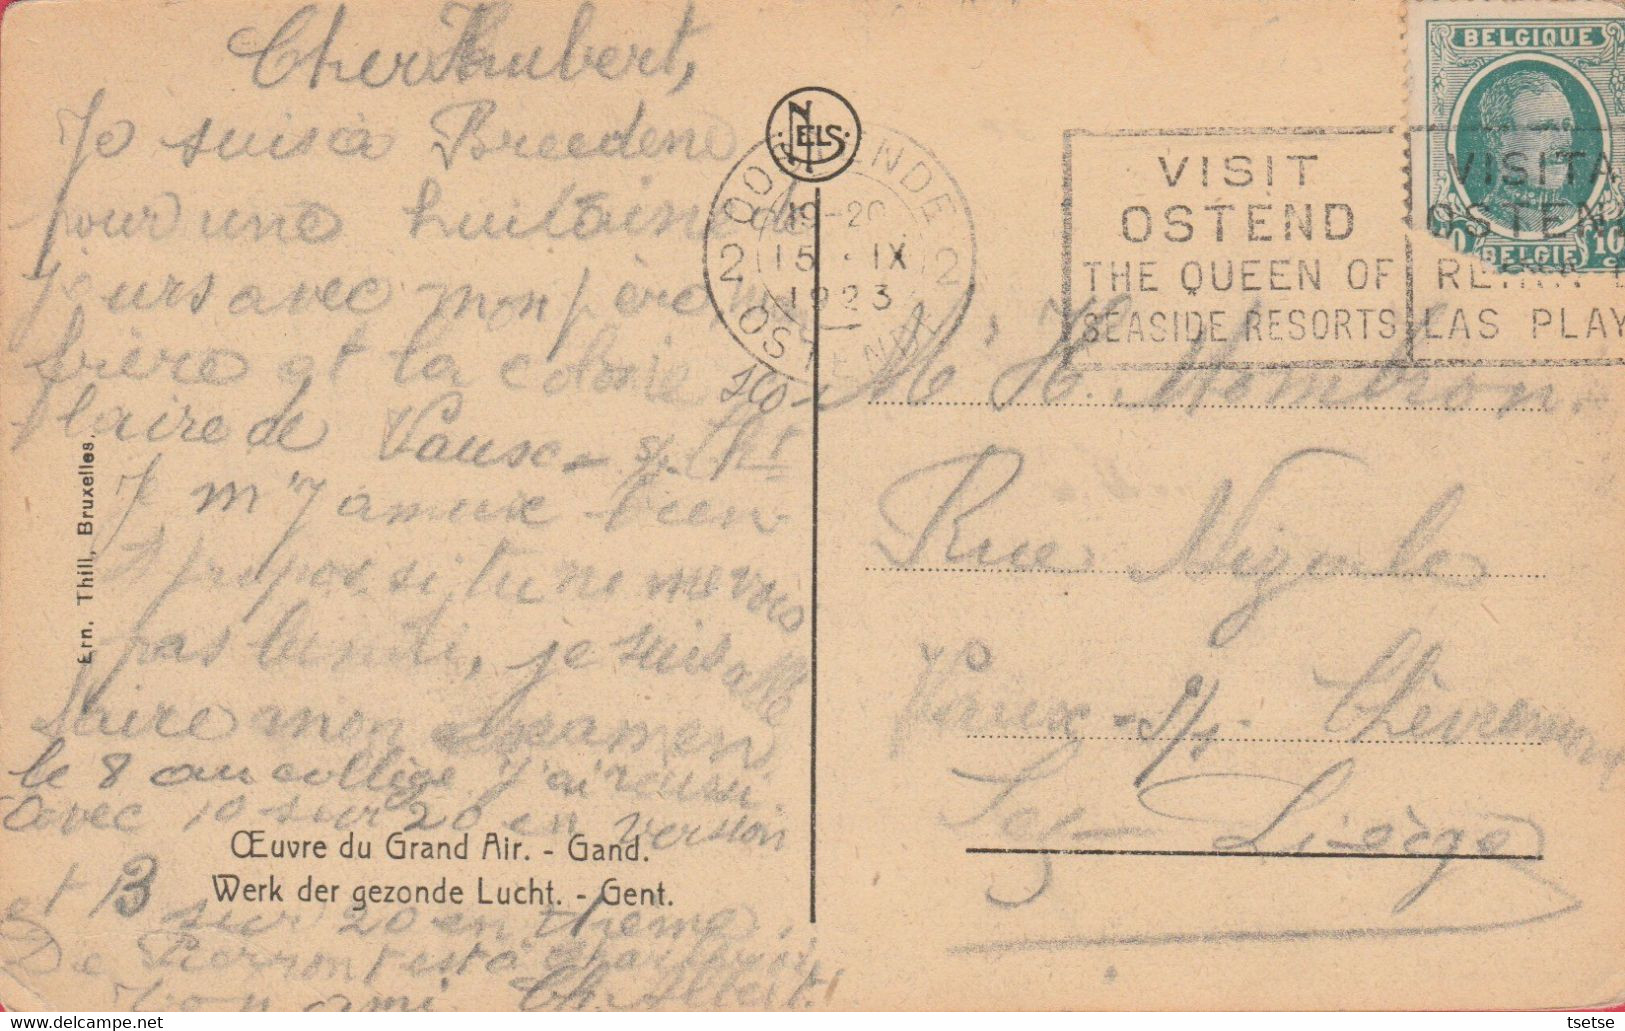 Cher Hubert,
Je suis à Breedene
pour une huitaine de
jours avec mon père, mon
frère et la colonie sco-
laire de Vaux-s/-Cht
Je m'y amuse bien
A propos si tu ne me vois
pas lundi, je suis allé
faire mon examen
le 8 au collège j'ai réussi
avec 10 sur 20 en version
et 13 sur 20 en thème.
De Pierront est à
Ton ami Ch. Albert.
Ern. Thill, Bruxelles.
Œuvre du Grand Air. - Gand.
Werk der gezonde Lucht. - Gent.
NELS
OOSTENDE
2 2
19-20
15 · IX
1923
OSTENDE
VISIT
OSTEND
THE QUEEN OF
SEASIDE RESORTS
VISITA
OSTEN
LAS PLAY
BELGIQUE
10
BELGIE
M H. Mombron.
Rue Nigule
Vaux-s/s- Chèvremont
Lez-Liège
tsetse